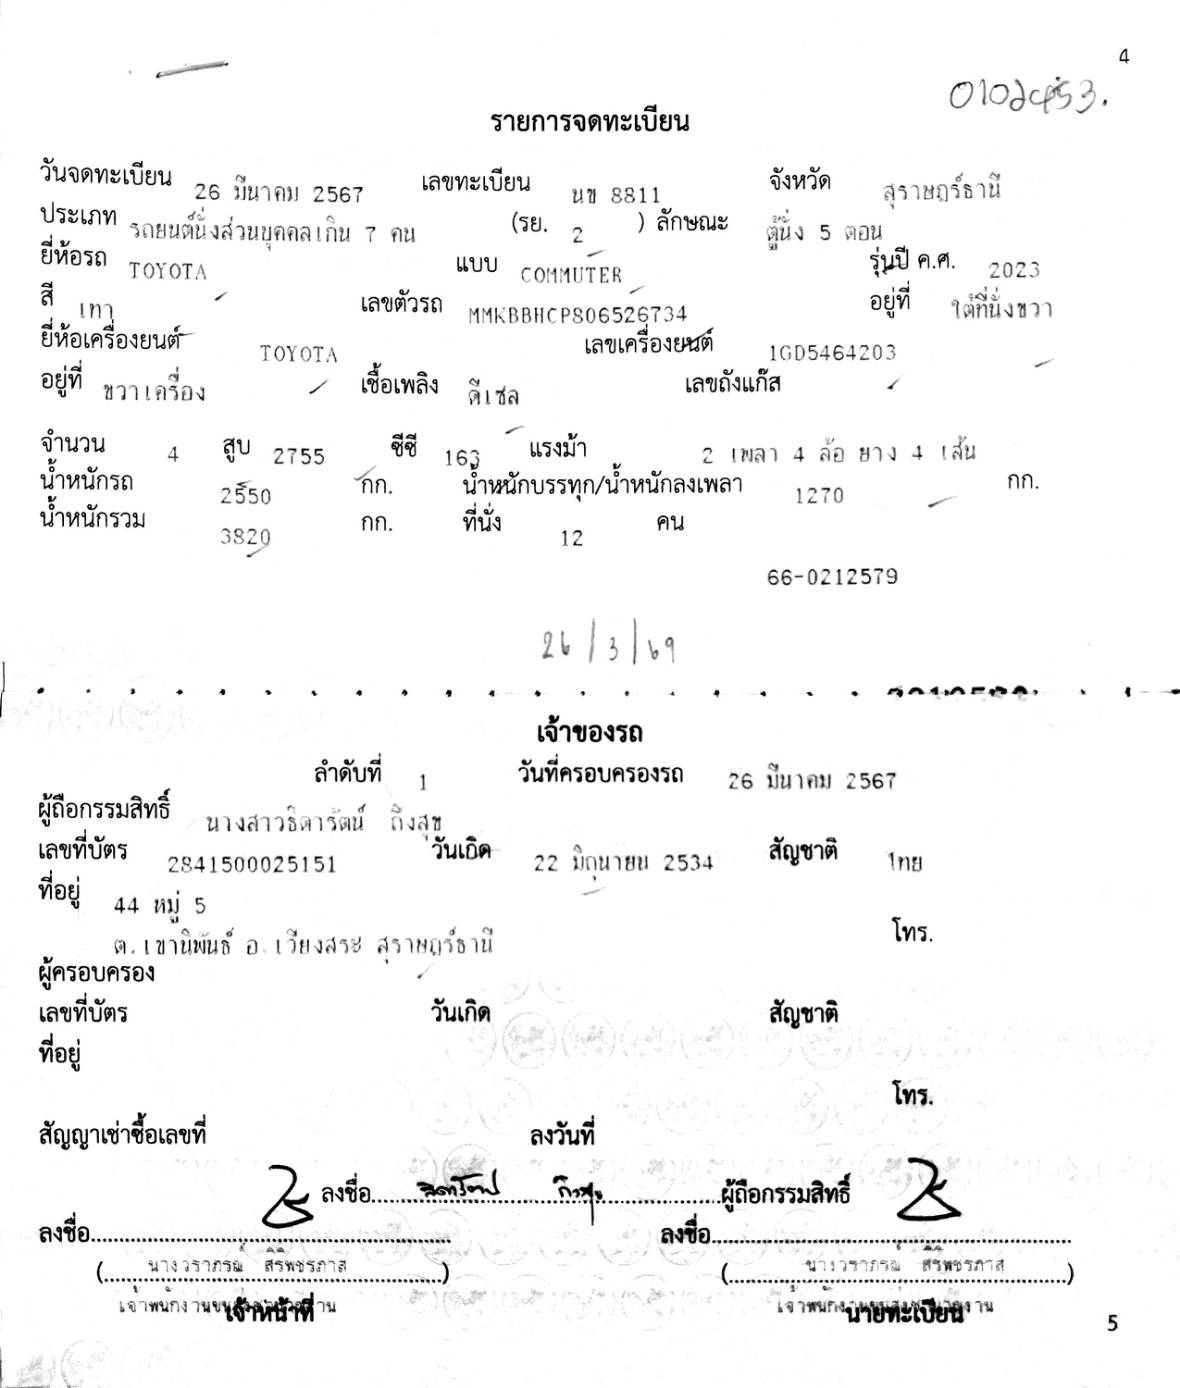 4
รายการจดทะเบียน
วันจดทะเบียน 26 มีนาคม 2567 เลขทะเบียน นข 8811 จังหวัด สุราษฎร์ธานี
ประเภท รถยนต์นั่งส่วนบุคคลเกิน 7 คน (รย. 2 ) ลักษณะ ตู้นั่ง 5 ตอน
ยี่ห้อรถ TOYOTA แบบ COMMUTER รุ่นปี ค.ศ. 2023
สี เทา เลขตัวรถ MMKBBHCP806526734 อยู่ที่ ใต้ที่นั่งขวา
ยี่ห้อเครื่องยนต์ TOYOTA เลขเครื่องยนต์ 1GD5464203
อยู่ที่ ขวาเครื่อง เชื้อเพลิง ดีเซล เลขถังแก๊ส
จำนวน 4 สูบ 2755 ซีซี 163 แรงม้า 2 เพลา 4 ล้อ ยาง 4 เส้น
น้ำหนักรถ 2550 กก. น้ำหนักบรรทุก/น้ำหนักลงเพลา 1270 กก.
น้ำหนักรวม 3820 กก. ที่นั่ง 12 คน
66-0212579
26/3/69
เจ้าของรถ
ลำดับที่ 1 วันที่ครอบครองรถ 26 มีนาคม 2567
ผู้ถือกรรมสิทธิ์ นางสาวธิดารัตน์ ถึงสุข
เลขที่บัตร 2841500025151 วันเกิด 22 มิถุนายน 2534 สัญชาติ ไทย
ที่อยู่ 44 หมู่ 5
ต.เขานิพันธ์ อ.เวียงสระ สุราษฎร์ธานี โทร.
ผู้ครอบครอง
เลขที่บัตร วันเกิด สัญชาติ
ที่อยู่
โทร.
สัญญาเช่าซื้อเลขที่ ลงวันที่
ลงชื่อ ผู้ถือกรรมสิทธิ์
ลงชื่อ ลงชื่อ
(นางวราภรณ์ สิริพชรภาส) (นางวราภรณ์ สิริพชรภาส)
เจ้าหน้าที่ นายทะเบียน
5